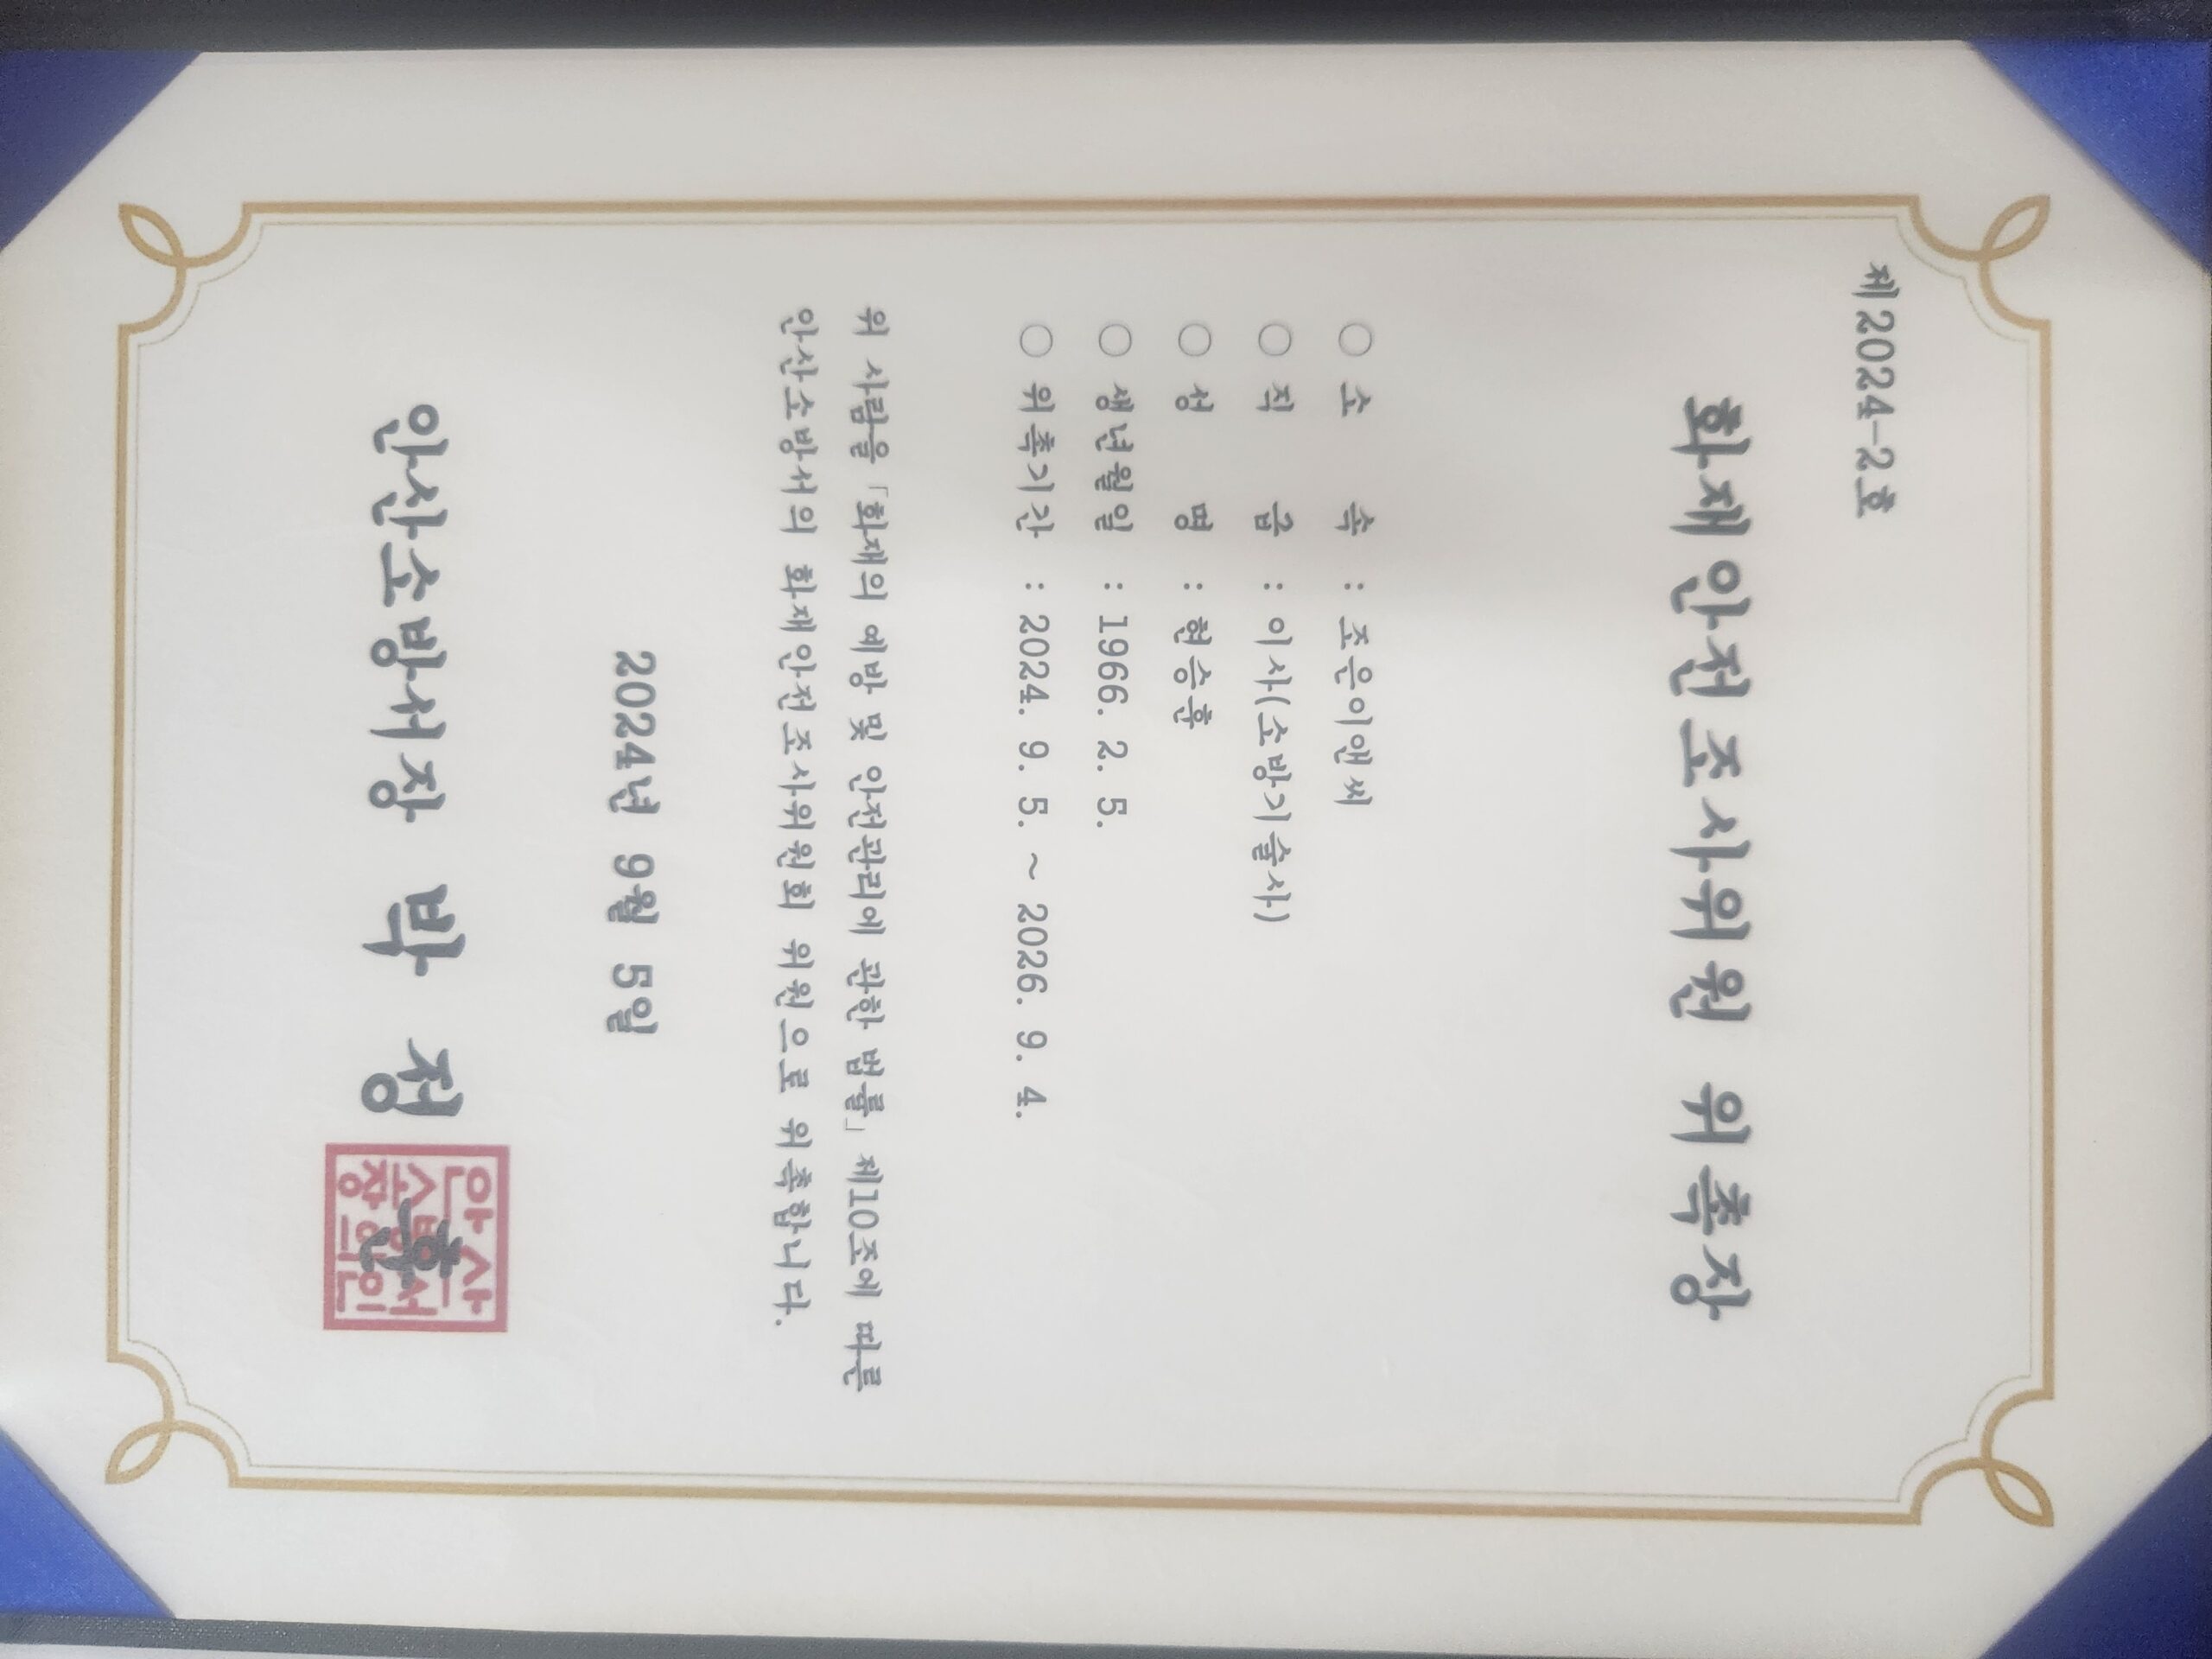 제2024-2호
화재안전조사위원 위촉장
○ 소 속 : 조은이앤씨
○ 직 급 : 이사(소방기술사)
○ 성 명 : 현승훈
○ 생년월일 : 1966. 2. 5.
○ 위촉기간 : 2024. 9. 5. ~ 2026. 9. 4.
위 사람을 「화재의 예방 및 안전관리에 관한 법률」 제10조에 따른
안산소방서의 화재안전조사위원회 위원으로 위촉합니다.
2024년 9월 5일
안산소방서장 박 정 훈
안산
소방서
장의인